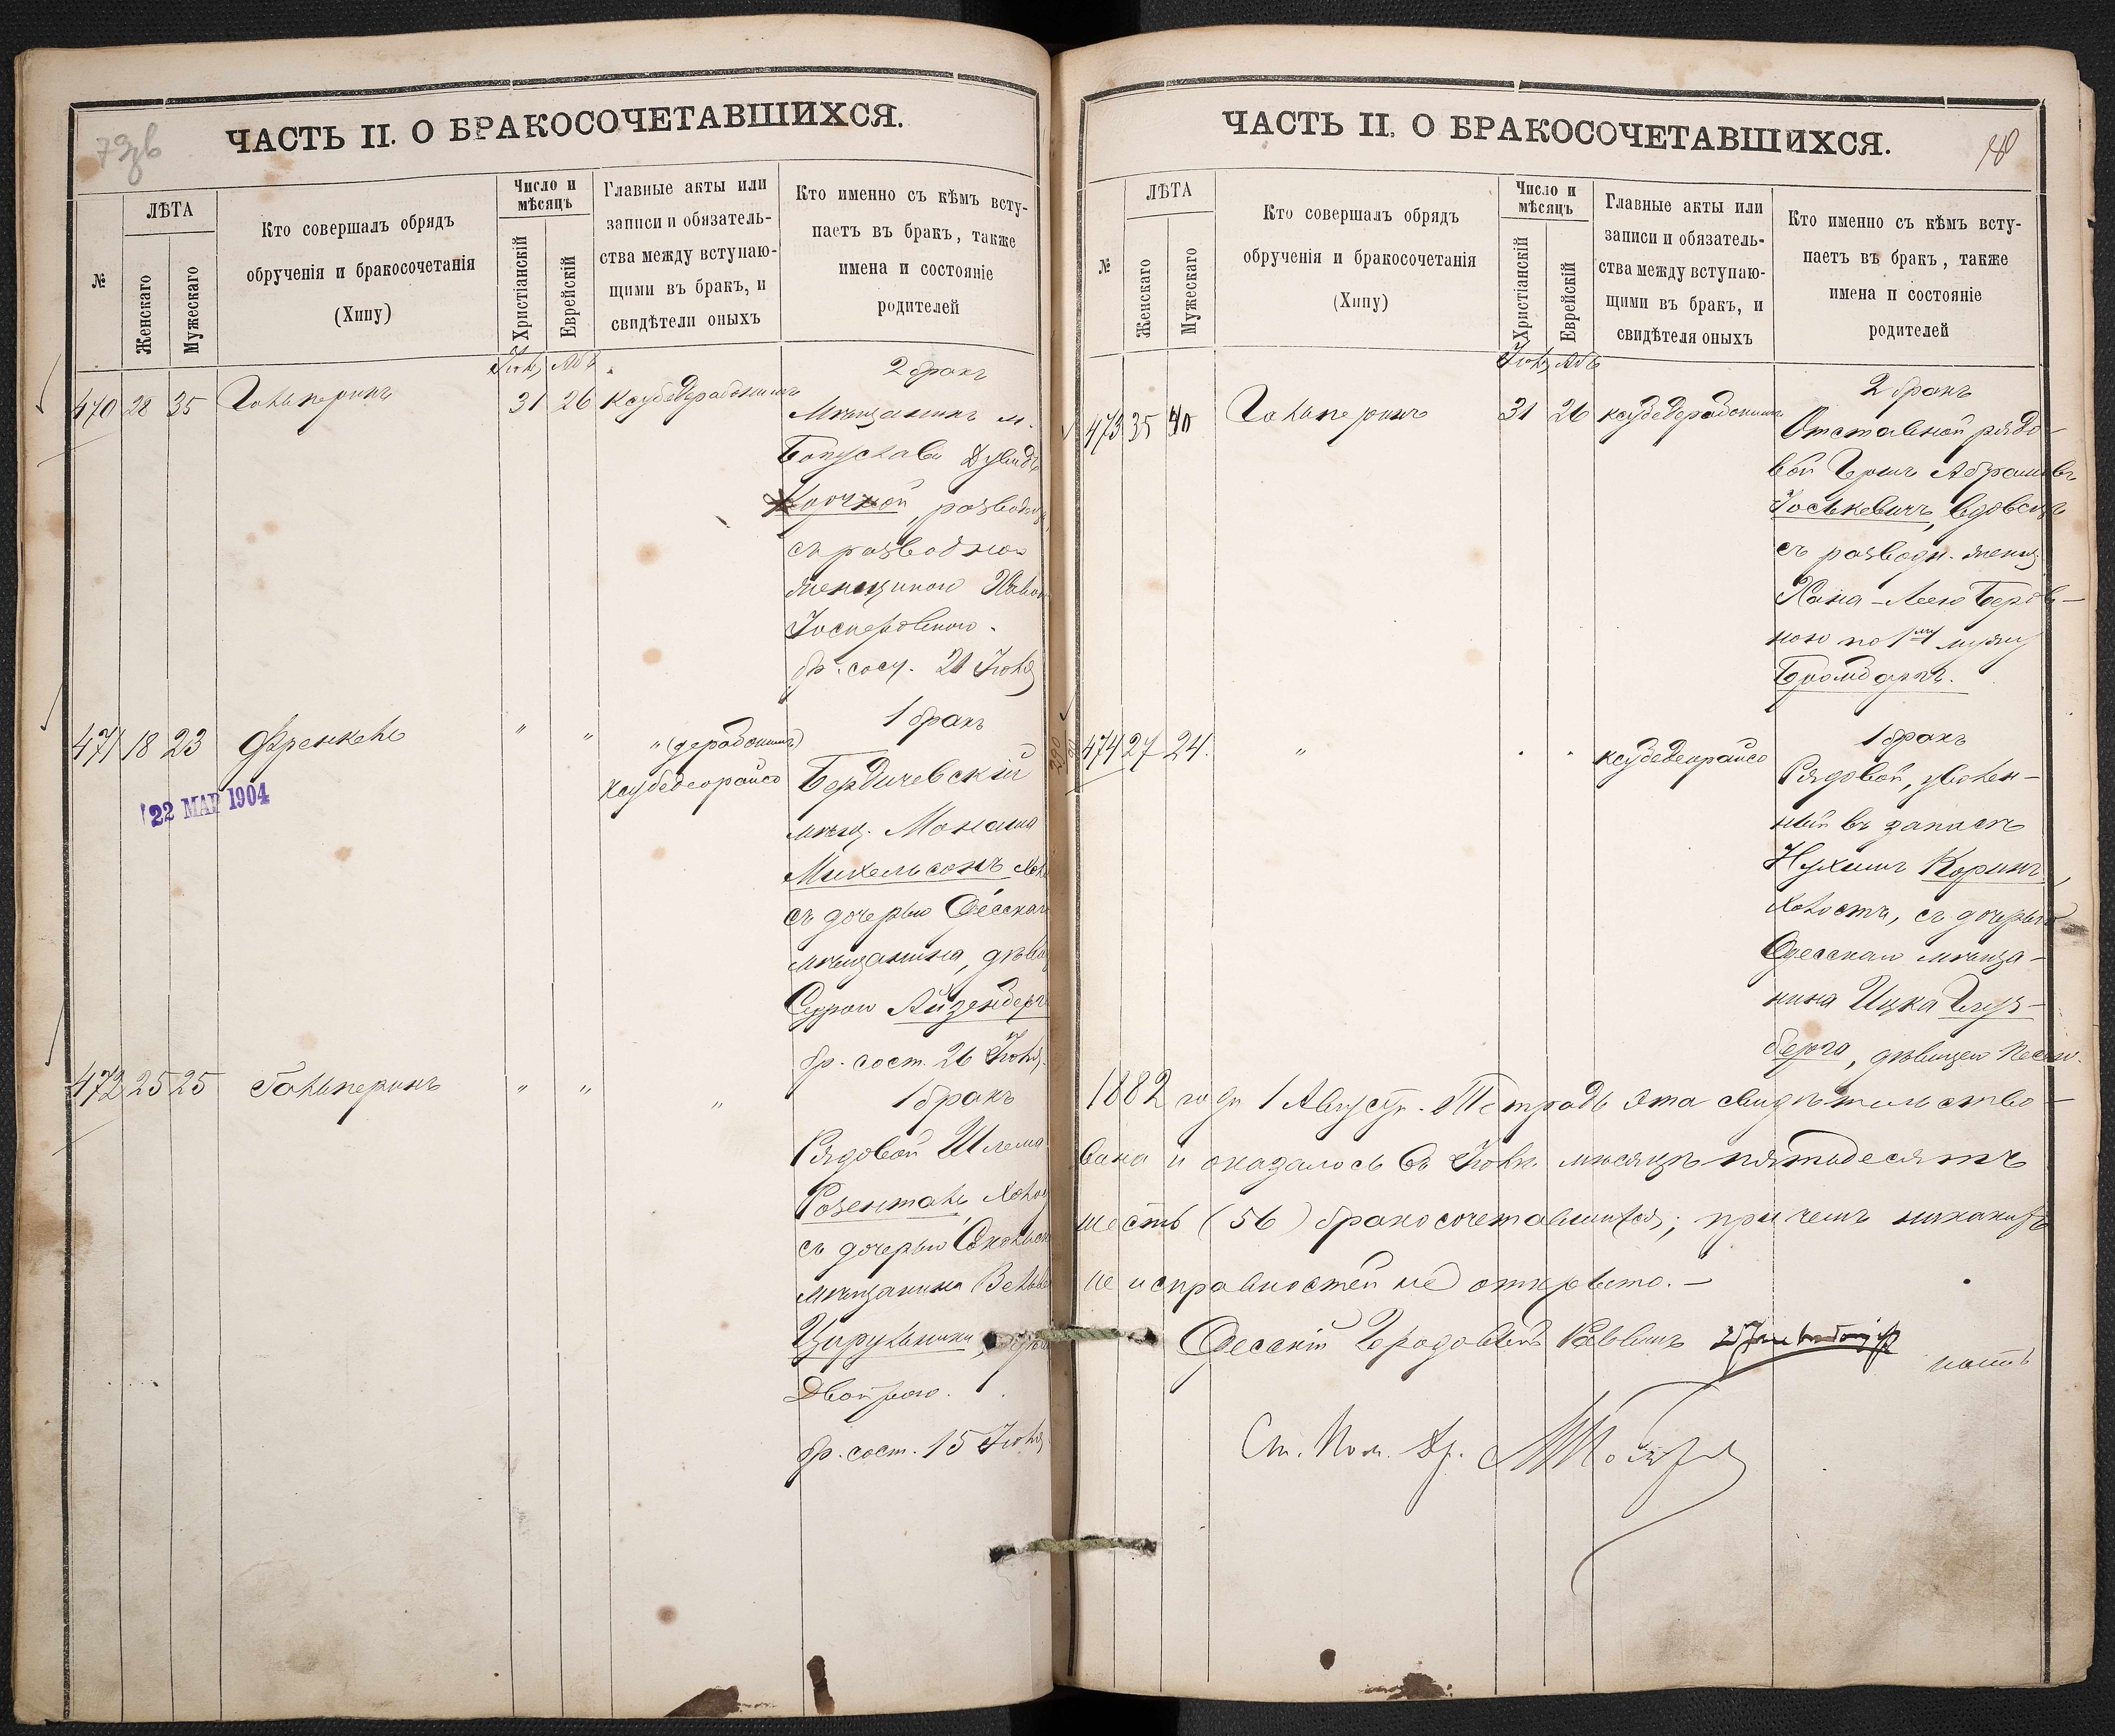 79об
ЧАСТЬ II. О БРАКОСОЧЕТАВШИХСЯ.
№
ЛѢТА
Женскаго
Мужескаго
Кто совершалъ обрядъ
обрученія и бракосочетанія
(Хипу)
Число и
мѣсяцъ
Христіанскій
Еврейскій
Главные акты или
записи и обязатель-
ства между вступаю-
щими въ бракъ, и
свидѣтели оныхъ
Кто именно съ кѣмъ всту-
паетъ въ бракъ, также
имена и состояніе
родителей
Іюля Абъ
470 28 35 Гальперинъ 31 26 Ксубедерабонимъ
2 бракъ
Мѣщанинъ м.
Богуслава Дувидъ
разводн.
съ разводною
женщиною
Іосиповною.
бр. сост. 21 Іюля
471 18 23 Френкель " " " (дерабонимъ)
ксубедеорайсо
1 бракъ
Бердичевскій
мѣщ. Монаша
Михельсонъ хол.
съ дочерью Одесскаго
мѣщанина, дѣвиц.
Суррою Айзенберга
бр. сост. 26 Іюля.
22 МАР 1904
472 25 25 Гальперинъ " " "
1 бракъ
Рядовой Шлема
Розенталь, холост
съ дочерью
мѣщанина
Цирульника,
Двойрою.
бр. сост. 15 Іюля
80
ЧАСТЬ II. О БРАКОСОЧЕТАВШИХСЯ.
№
ЛѢТА
Женскаго
Мужескаго
Кто совершалъ обрядъ
обрученія и бракосочетанія
(Хипу)
Число и
мѣсяцъ
Христіанскій
Еврейскій
Главные акты или
записи и обязатель-
ства между вступаю-
щими въ бракъ, и
свидѣтеля оныхъ
Кто именно съ кѣмъ всту-
паетъ въ бракъ, также
имена и состояніе
родителей
Іюля Абъ
473 35 40 Гальперинъ 31 26 ксубедерабонимъ
2 бракъ
Отставной рядо-
вой Гершъ Абрамовъ
Іоськевичъ, вдовецъ
съ разводн. женщ.
Хана-Леею Беров-
ною по 1му мужу
474 27 24. " " " ксубедеорайсо
1 бракъ
Рядовой, уволен-
ный въ запасъ
Нухимъ Коринъ,
холостъ, съ дочерью
Одесскаго мѣща-
нина Ицка Гинз-
берга, дѣвицею Песею.
1882 года 1 Августа. Тетрадь эта свидѣтельство-
вана и оказалось въ Іюлѣ мѣсяцѣ пятьдесятъ
шесть (56) бракосочетавшихся; при чемъ никакихъ
не исправностей не открыто. —
Одесскій Городовой Раввинъ
Ст. Пом. Др.